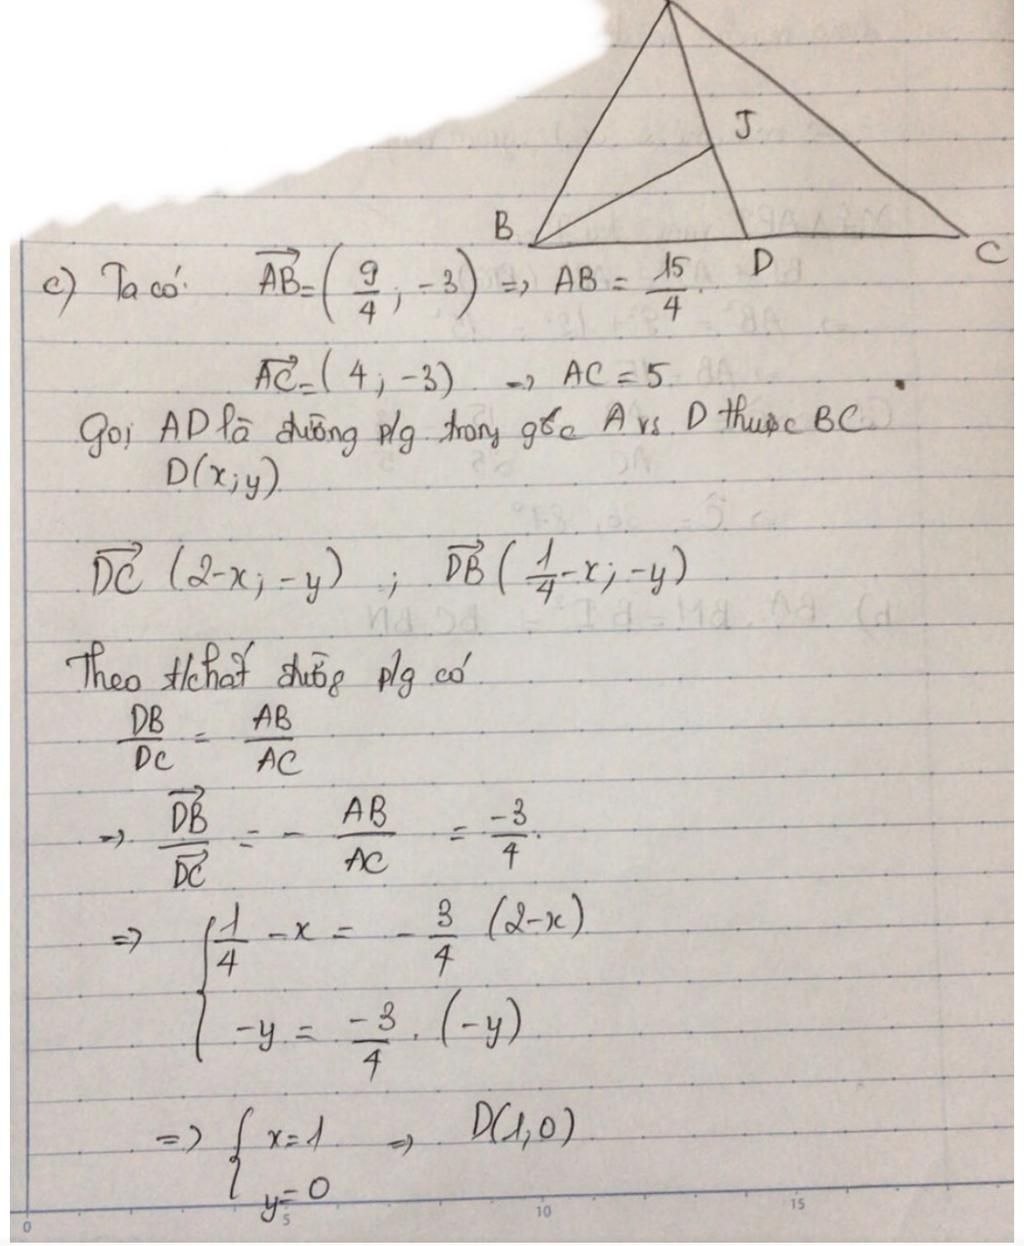 J
B D C
c) Ta có: \overrightarrow{AB} = ( \frac{9}{4} ; -3 ) => AB = \frac{15}{4}.
\overrightarrow{AC} = ( 4 ; -3 ) => AC = 5
Gọi AD là đường p/g trong góc A vs D thuộc BC
D(x;y)
\overrightarrow{DC} (2-x; -y) ; \overrightarrow{DB} ( \frac{1}{4} -x; -y)
Theo t/chất đường p/g có
\frac{DB}{DC} = \frac{AB}{AC}
=> \frac{\overrightarrow{DB}}{\overrightarrow{DC}} = - \frac{AB}{AC} = \frac{-3}{4}.
=> { \frac{1}{4} -x = - \frac{3}{4} (2-x)
-y = \frac{-3}{4} . (-y)
=> { x=1 => D(1,0)
y=0
0 5 10 15